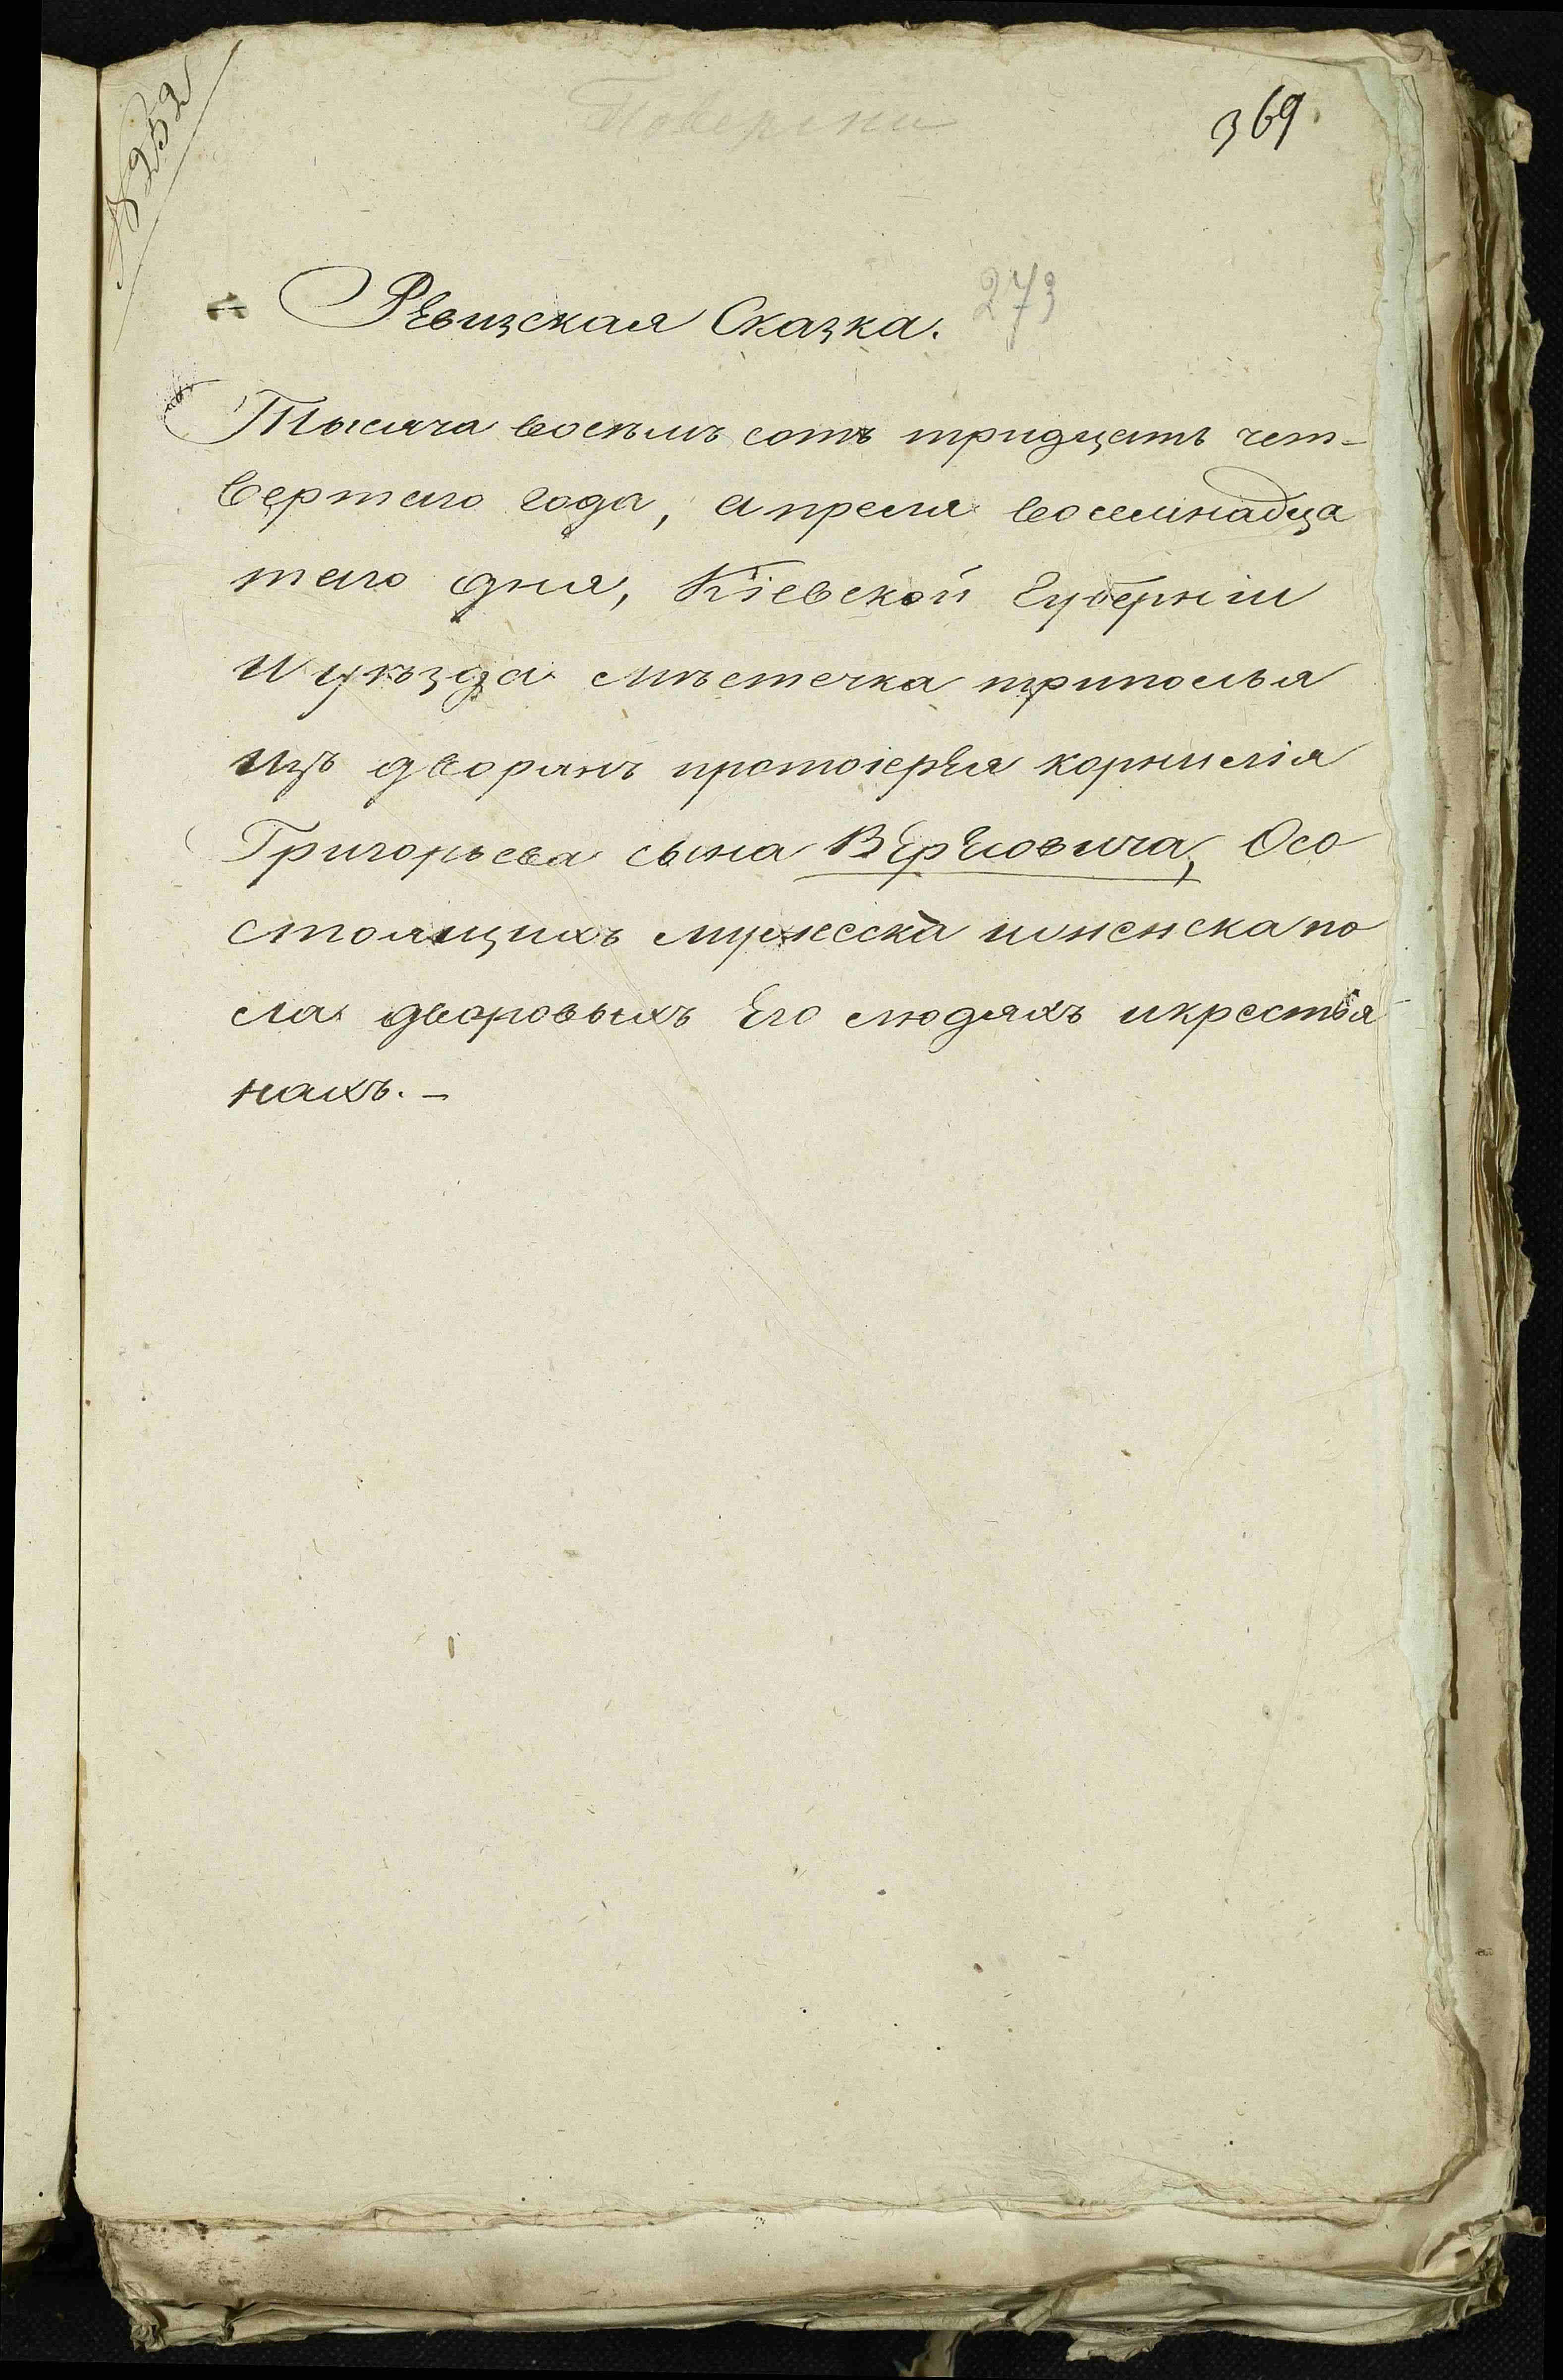 369
Ревизская Сказка.
273
Тысяча восемъ сотъ тридцать чет-
вертаго года, апреля восемнадца
таго дня, Кіевской Губерніи
и уѣзда мѣстечка триполья
изъ дворянъ протоіерея корнилія
Григорьева сына Верѣовича, Осо
стоящихъ мужеска иженска по
ла дворовыхъ Его людяхъ икрестья
нахъ. –